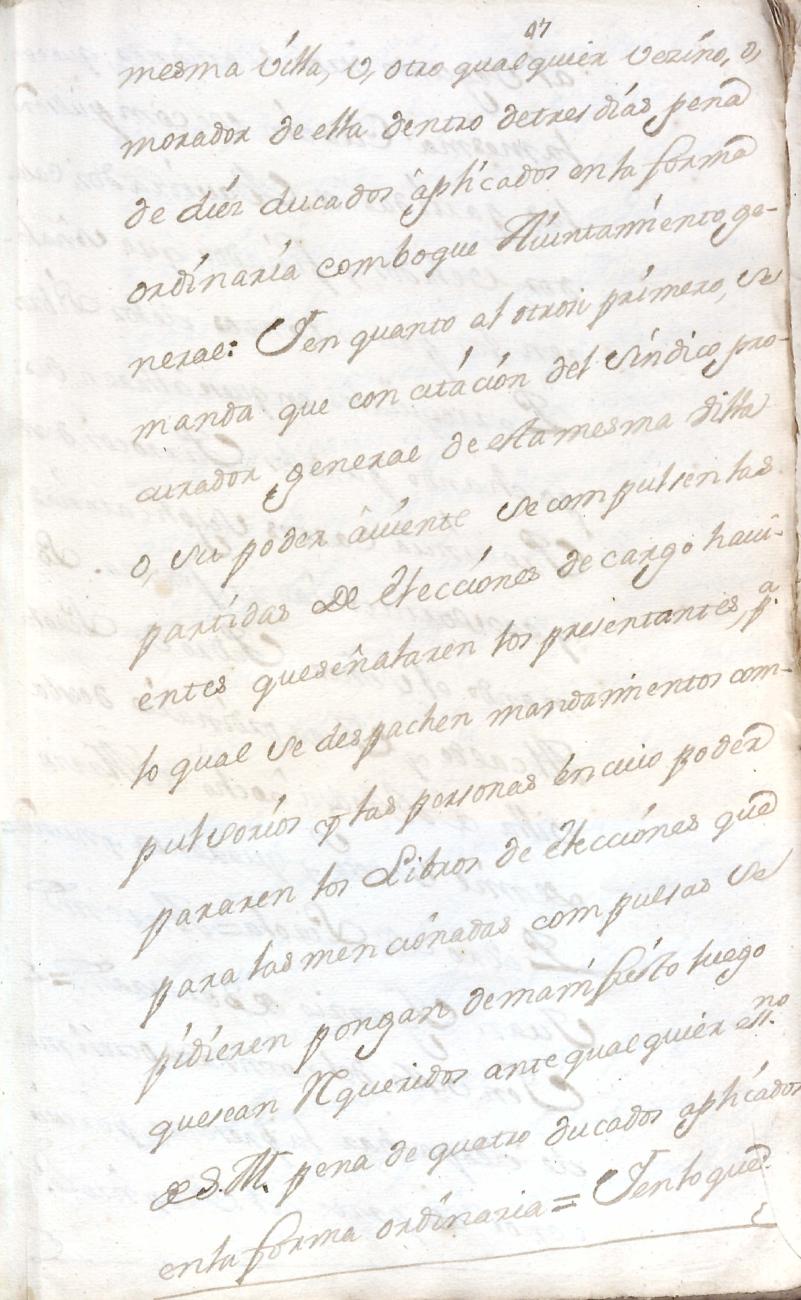 47
mesma Villa, v, otro qualquier Vezino, o,
morador de ella dentro detres dias pena
de diez ducados aplicados enla forma
ordinaria comboque Aiuntamiento ge-
neral: Yen quanto al otrosi primero, se
manda que con citación del Síndico pro-
curador general de esta mesma Villa
o, su poder aviente se compulsen las
partidas de Elecciones de cargo havi-
entes queseñalaren los presentantes, pa.
lo qual se despachen mandamientos com-
pulsorios y las personas encuio poder
pararen los Libros de elecciones que
para las mencionadas compulsas se
pidieren pongan demanifiesto luego
quesean Requeridos ante qualquier essno.
de S.M. pena de quatro ducados aplicados
enla forma ordinaria = Yenloque